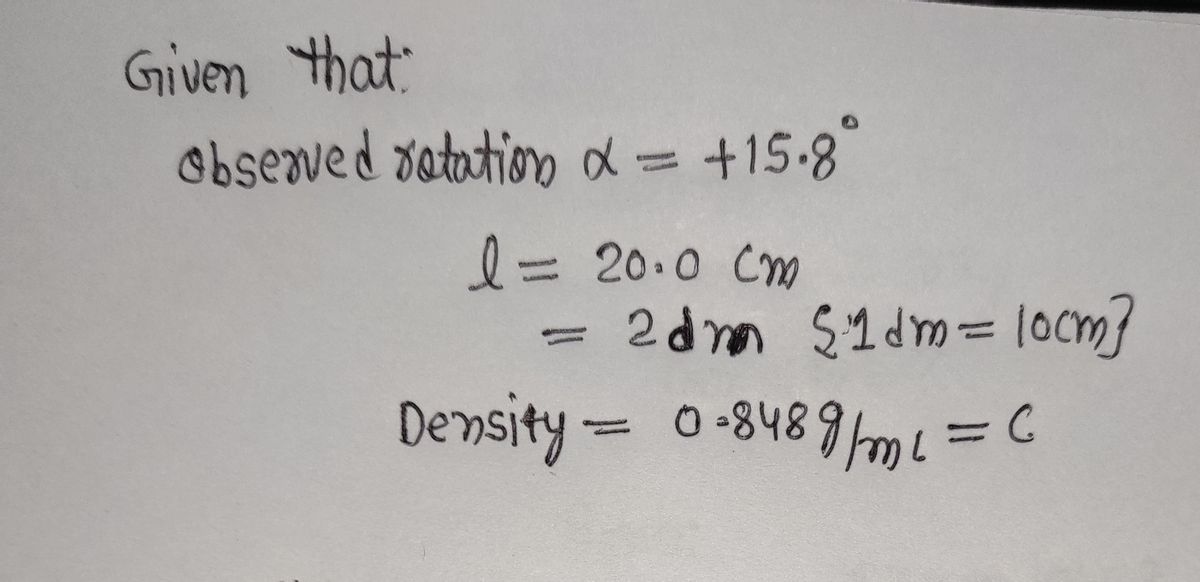 Given that:
observed rotation α = +15.8°
l = 20.0 cm
= 2dm {∵1dm = 10cm}
Density = 0.848g/ml = C